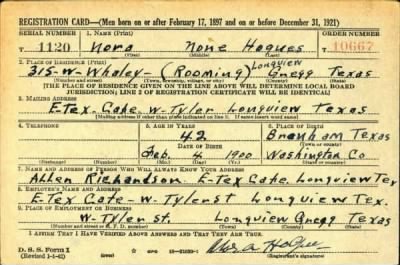 REGISTRATION CARD—(Men born on or after February 17, 1897 and on or before December 31, 1921)
SERIAL NUMBER 1. NAME (Print) ORDER NUMBER
T 1120 Nora None Hogues T 10667
(First) (Middle) (Last)
2. PLACE OF RESIDENCE (Print) Longview
315-W-Whaley-(Rooming) Gregg Texas
(Number and street) (Town, township, village, or city) (County) (State)
[THE PLACE OF RESIDENCE GIVEN ON THE LINE ABOVE WILL DETERMINE LOCAL BOARD
JURISDICTION; LINE 2 OF REGISTRATION CERTIFICATE WILL BE IDENTICAL]
3. MAILING ADDRESS
E-Tex Cafe. W-Tyler Longview Texas
[Mailing address if other than place indicated on line 2. If same insert word same]
4. TELEPHONE 5. AGE IN YEARS 6. PLACE OF BIRTH
42 Brenham Texas
DATE OF BIRTH (Town or county)
Feb. 4 1900 Washington Co
(Exchange) (Number) (Mo.) (Day) (Yr.) (State or country)
7. NAME AND ADDRESS OF PERSON WHO WILL ALWAYS KNOW YOUR ADDRESS
Allen Richardson E-Tex Cafe. Longview Tex
8. EMPLOYER'S NAME AND ADDRESS
E-Tex Cafe-W-Tyler St Longview Tex.
9. PLACE OF EMPLOYMENT OR BUSINESS
W-Tyler St. Longview Gregg Texas
(Number and street or R. F. D. number) (Town) (County) (State)
I AFFIRM THAT I HAVE VERIFIED ABOVE ANSWERS AND THAT THEY ARE TRUE.
D. S. S. Form 1
(Revised 1-1-42) (Registrant's signature)